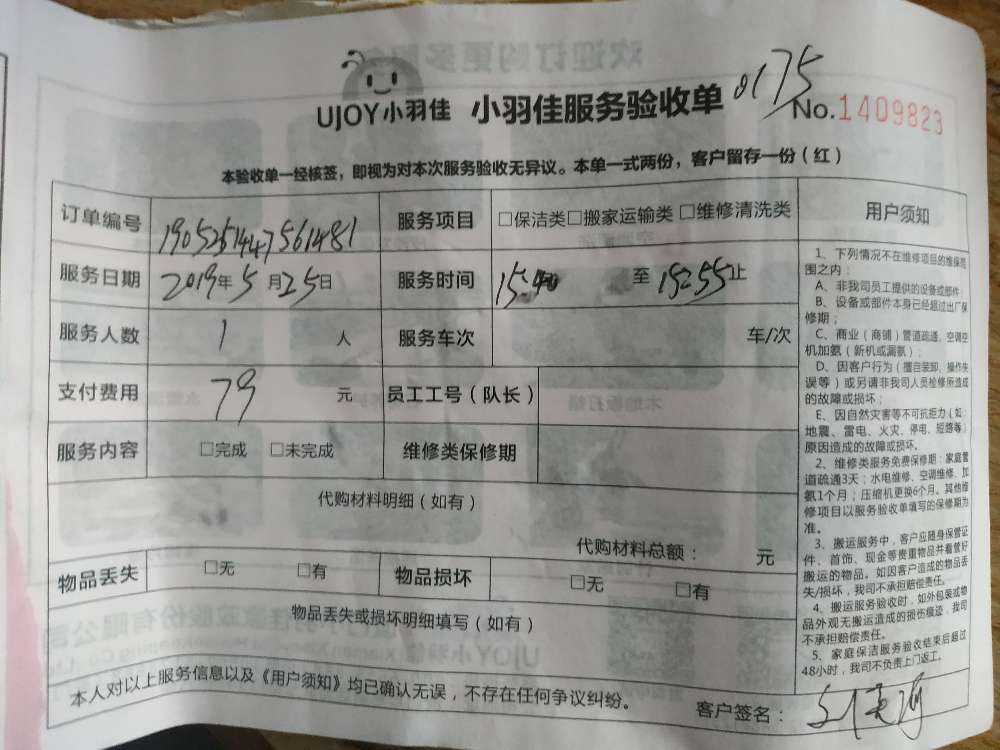 UJOY小羽佳 小羽佳服务验收单 0175
No.1409823
本验收单一经核签，即视为对本次服务验收无异议。本单一式两份，客户留存一份（红）
订单编号 1905251447561481 服务项目 □保洁类□搬家运输类 □维修清洗类
服务日期 2019年5月25日 服务时间 15:40 至 15:55止
服务人数 1 人 服务车次 车/次
支付费用 79 元 员工工号（队长）
服务内容 □完成 □未完成 维修类保修期
代购材料明细（如有）
代购材料总额： 元
物品丢失 □无 □有 物品损坏 □无 □有
物品丢失或损坏明细填写（如有）
本人对以上服务信息以及《用户须知》均已确认无误，不存在任何争议纠纷。
客户签名：
用户须知
1、下列情况不在维修项目的维保范
围之内：
A、非我司员工提供的设备或部件
B、设备或部件本身已经超过出厂保
修期；
C、商业（商铺）管道疏通、空调空
机加氨（新机或漏氨；
D、因客户行为（擅自装卸、操作失
误等）或另请非我司人员检修所造成
的故障或损坏；
E、因自然灾害等不可抗拒力（如：
地震、雷电、火灾、停电、短路等）
原因造成的故障或损坏。
2、维修类服务免费保修期：家庭管
道疏通3天；水电维修、空调维修、加
氨1个月；压缩机更换6个月。其他维
修项目以服务验收单填写的保修期为
准。
3、搬运服务中，客户应随身保管证
件、首饰、现金等贵重物品并看管好
搬运的物品。如因客户造成的物品丢
失/损坏，我司不承担赔偿责任。
4、搬运服务验收时，如外包装或物
品外观无搬运造成的损伤痕迹，我司
不承担赔偿责任。
5、家庭保洁服务验收结束后超过
48小时，我司不负责上门返工。